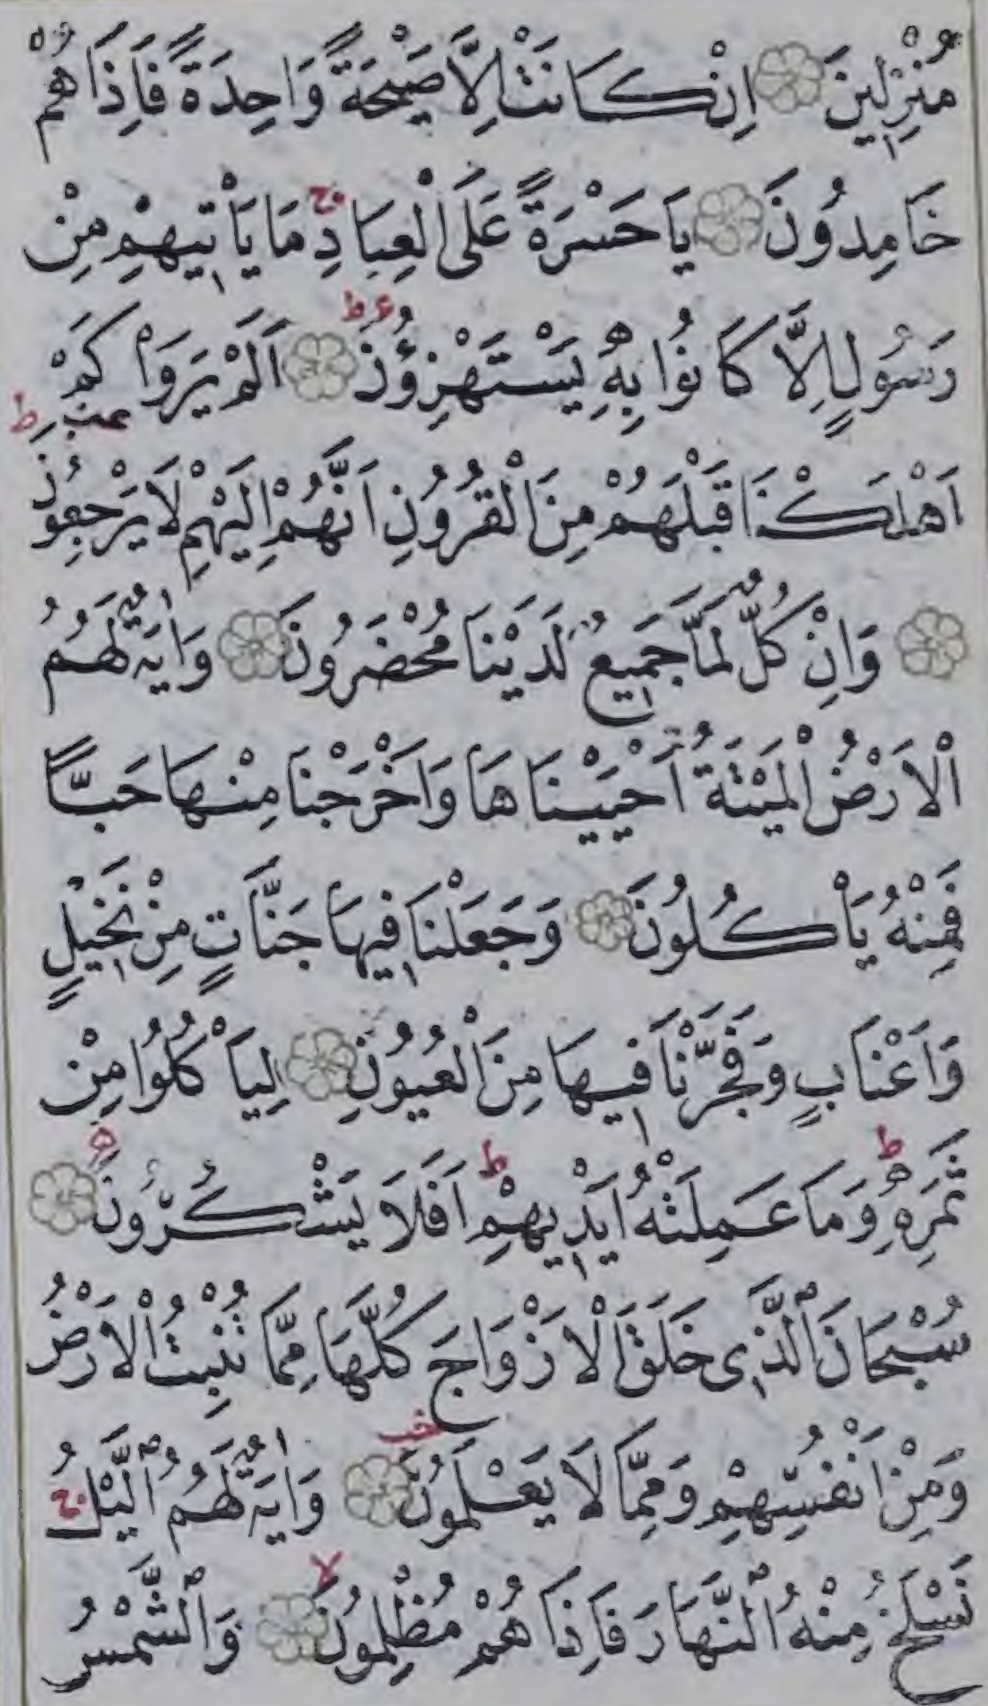 مُنْزِلِينَ ۝ اِنْ كَانَتْ اِلَّا صَيْحَةً وَاحِدَةً فَاِذَا هُمْ
خَامِدُونَ ۝ يَا حَسْرَةً عَلَى الْعِبَادِ ج مَا يَاْتِيهِمْ مِنْ
رَسُولٍ اِلَّا كَانُوا بِهِ يَسْتَهْزِؤُنَ ۝ اَلَمْ يَرَوْا كَمْ
اَهْلَكْنَا قَبْلَهُمْ مِنَ الْقُرُونِ اَنَّهُمْ اِلَيْهِمْ لَا يَرْجِعُونَ ط
۝ وَاِنْ كُلٌّ لَمَّا جَمِيعٌ لَدَيْنَا مُحْضَرُونَ ۝ وَاٰيَةٌ لَهُمُ
الْاَرْضُ الْمَيْتَةُ اَحْيَيْنَاهَا وَاَخْرَجْنَا مِنْهَا حَبًّا
فَمِنْهُ يَاْكُلُونَ ۝ وَجَعَلْنَا فِيهَا جَنَّاتٍ مِنْ نَخِيلٍ
وَاَعْنَابٍ وَفَجَّرْنَا فِيهَا مِنَ الْعُيُونِ ۝ لِيَاْكُلُوا مِنْ
ثَمَرِهِ ط وَمَا عَمِلَتْهُ اَيْدِيهِمْ ط اَفَلَا يَشْكُرُونَ ۝
سُبْحَانَ الَّذِي خَلَقَ الْاَزْوَاجَ كُلَّهَا مِمَّا تُنْبِتُ الْاَرْضُ
وَمِنْ اَنْفُسِهِمْ وَمِمَّا لَا يَعْلَمُونَ ۝ وَاٰيَةٌ لَهُمُ الَّيْلُ ج
نَسْلَخُ مِنْهُ النَّهَارَ فَاِذَا هُمْ مُظْلِمُونَ لا ۝ وَالشَّمْسُ